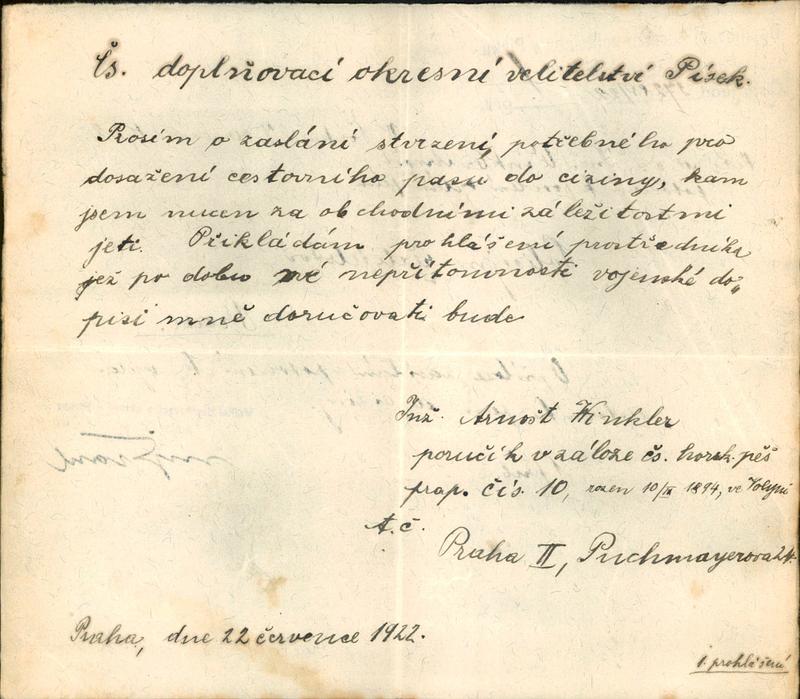 Čs. doplňovací okresní velitelství Písek.
Prosím o zaslání stvrzení, potřebného pro
dosažení cestovního pasu do ciziny, kam
jsem nucen za obchodními záležitostmi
jeti. Přikládám prohlášení prostředníka
jež po dobu mé nepřítomnosti vojenské do„
pisi mně doručovati bude
Inž. Arnošt Winkler
poručík v záloze čs. horsk. pěš
prap. čís. 10, rozen 10/IX 1894, ve Volyni
t. č.
Praha II, Puchmayerova 24.
Praha, dne 22 července 1922.
1. prohlášení